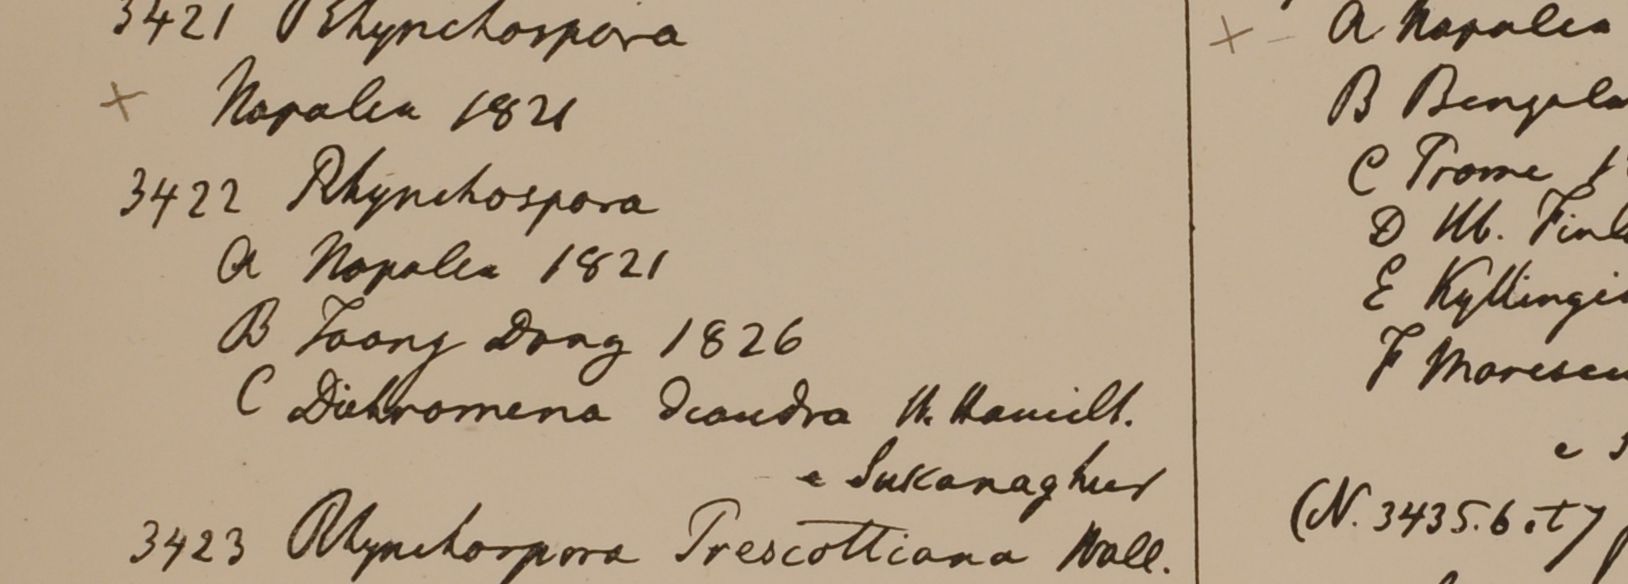 3421 Rhynchospora
× Napalea 1821
3422 Rhynchospora
A Napalea 1821
B Taong Dong 1826
C Dichromena diandra H. Hamilt.
e Sukanaghur
3423 Rhynchospora Prescottiana Wall.
× - A Napalea
B Bengala
C Prome 1
D Hb. Finl
E Kyllingi
F
e
(N. 3435.6.et 7